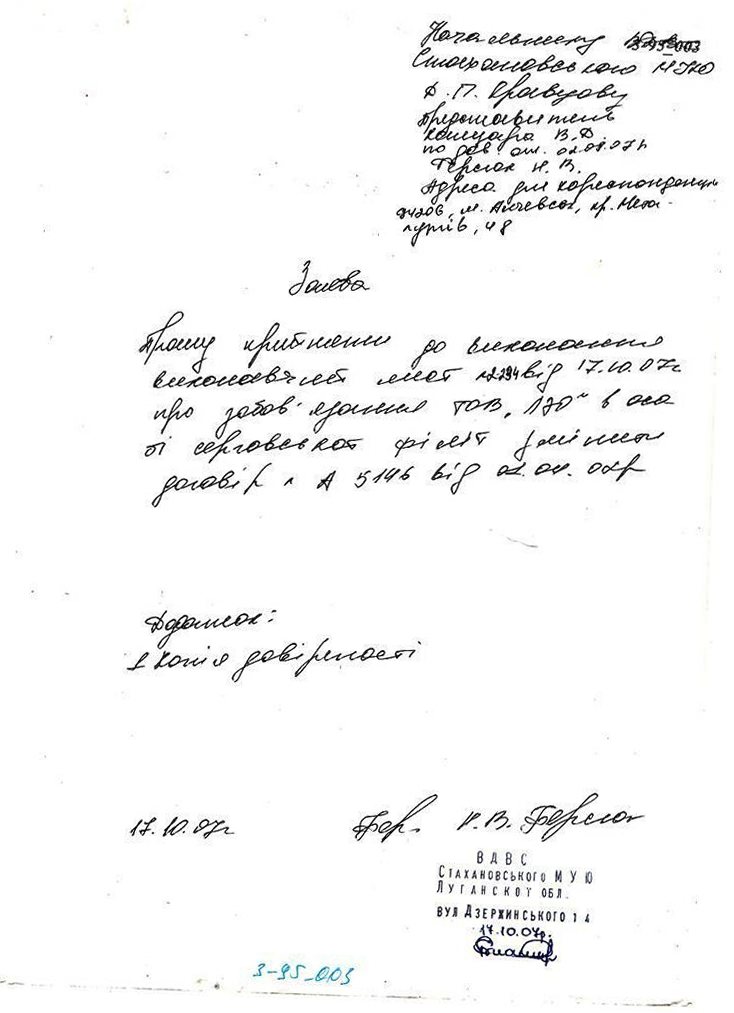 Начальнику
3-95-003
Стахановського МУЮ
Д.П. Кравцову
Представитель
В.Д.
по дов. от. 02.07.07г
Н.В.
Адреса для кореспонденции
м. Алчевськ, пр. Мета-
лургів, 48
Заява
Прошу прийняти до виконання
виконавчий лист 2294 від 17.10.07г
про забов'язання ТОВ в осо
бі філії змінити
договір А 5146 від
Додаток:
1 Копія довіреності
17.10.07г
Н.В.
ВДВС
СТАХАНОВСЬКОГО МУЮ
ЛУГАНСКОТ ОБЛ.
ВУЛ ДЗЕРЖИНСЬКОГО 14
17.10.07р.
3-95_003